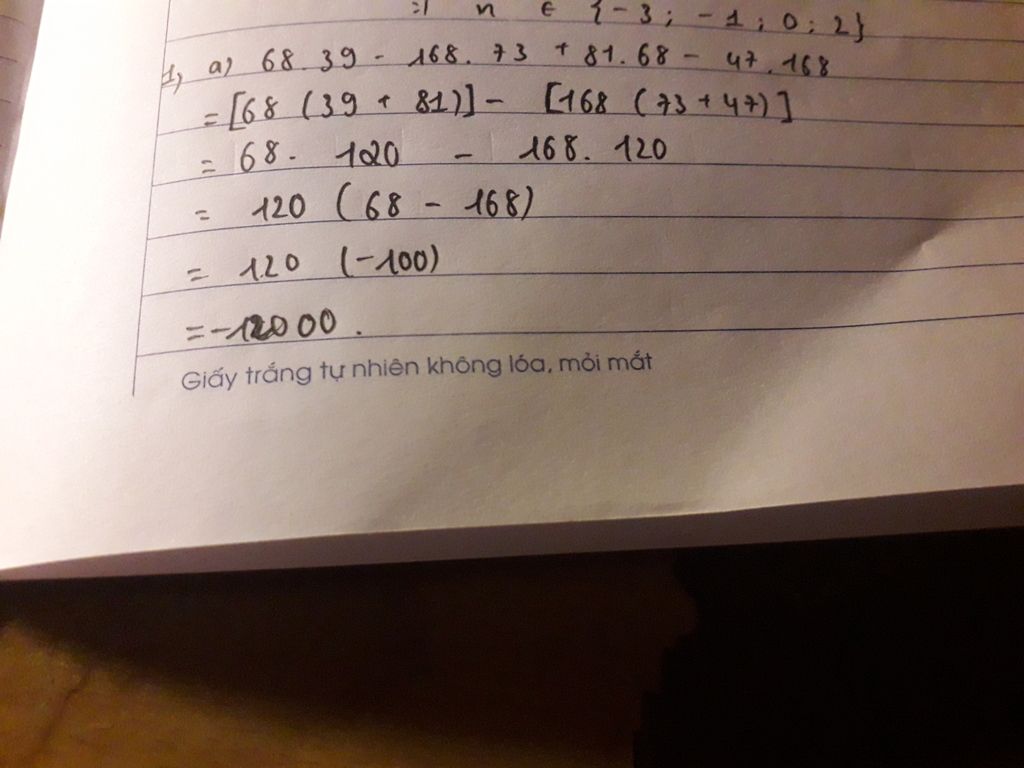 =) n ∈ {-3 ; -1 ; 0 ; 2}
1, a) 68.39 - 168.73 + 81.68 - 47.168
= [68 (39 + 81)] - [168 (73 + 47)]
= 68. 120 - 168. 120
= 120 (68 - 168)
= 120 (-100)
= -12000.
Giấy trắng tự nhiên không lóa, mỏi mắt